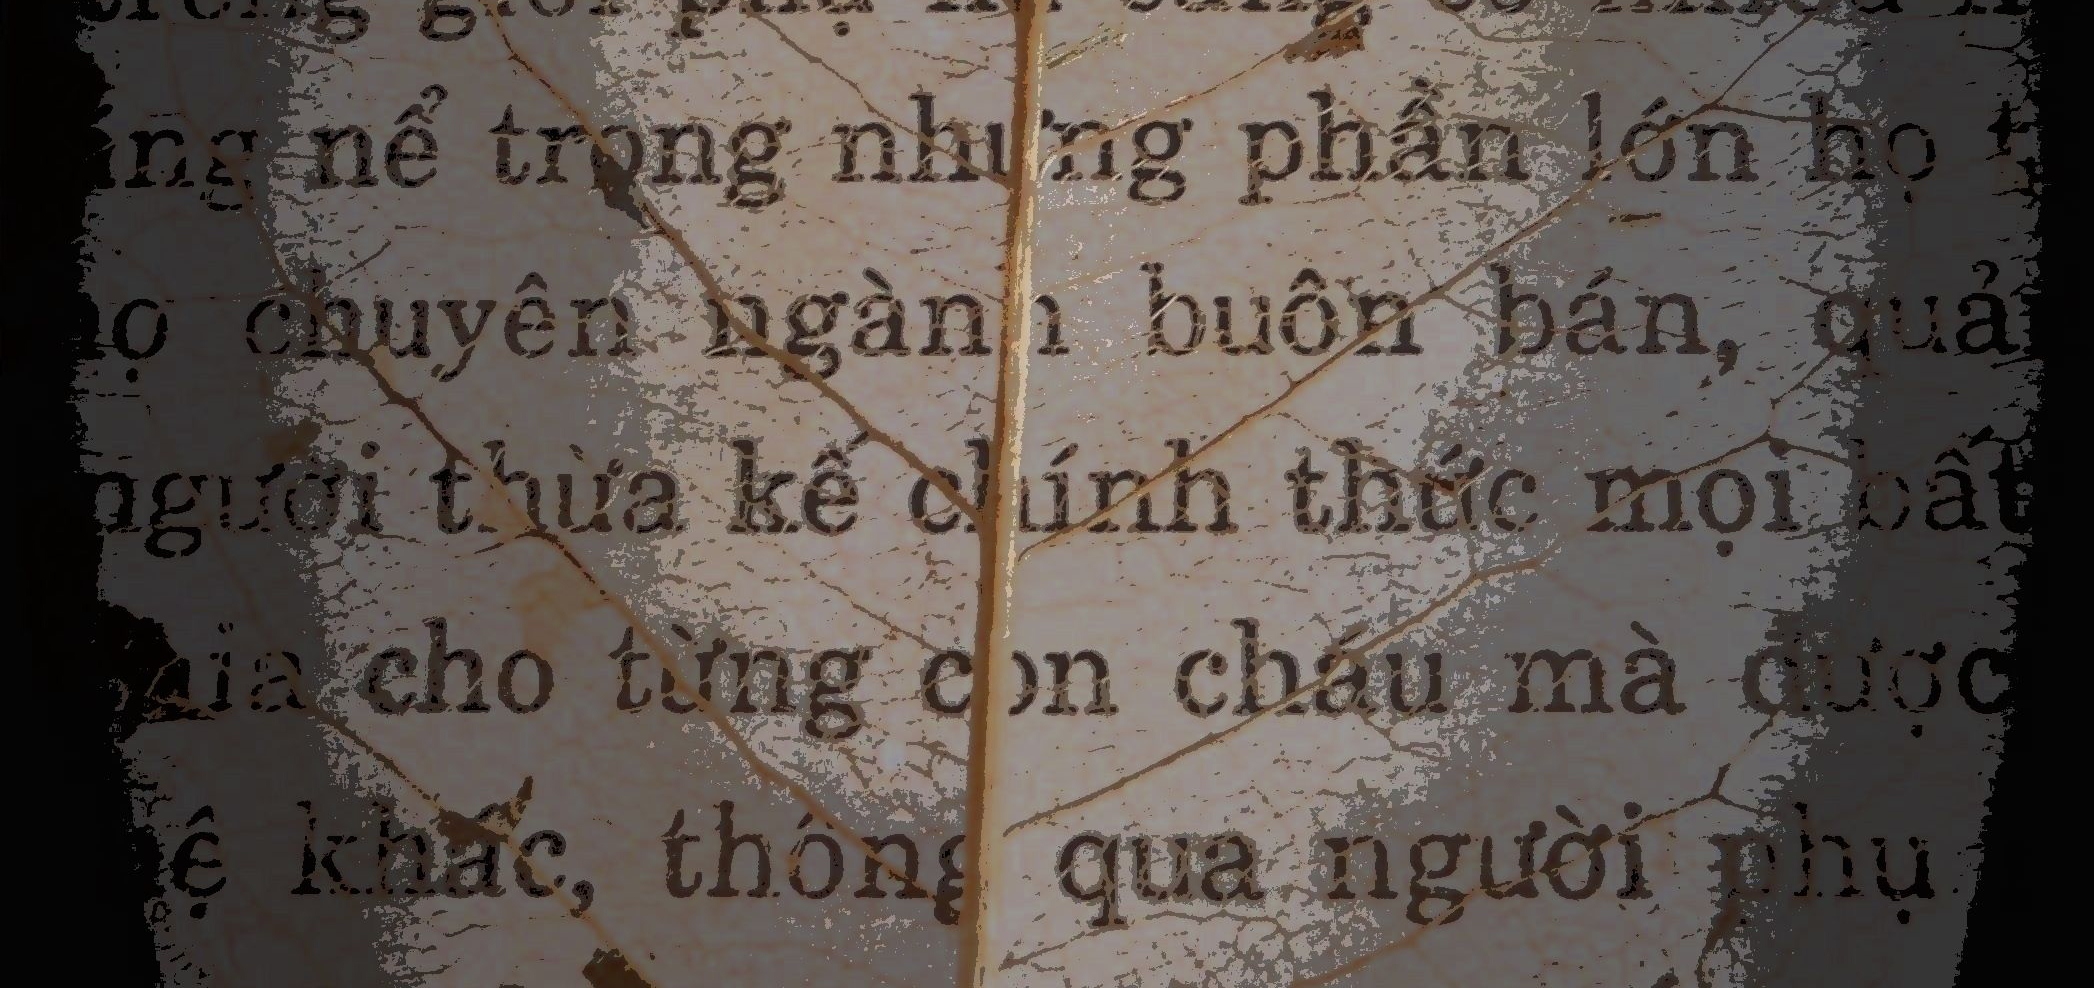 trong giới phụ nữ
nể trọng nhưng phần lớn họ
họ chuyên ngành buôn bán, quả
người thừa kế chính thức mọi bất
cho từng con cháu mà được
hệ khác, thông qua người phụ